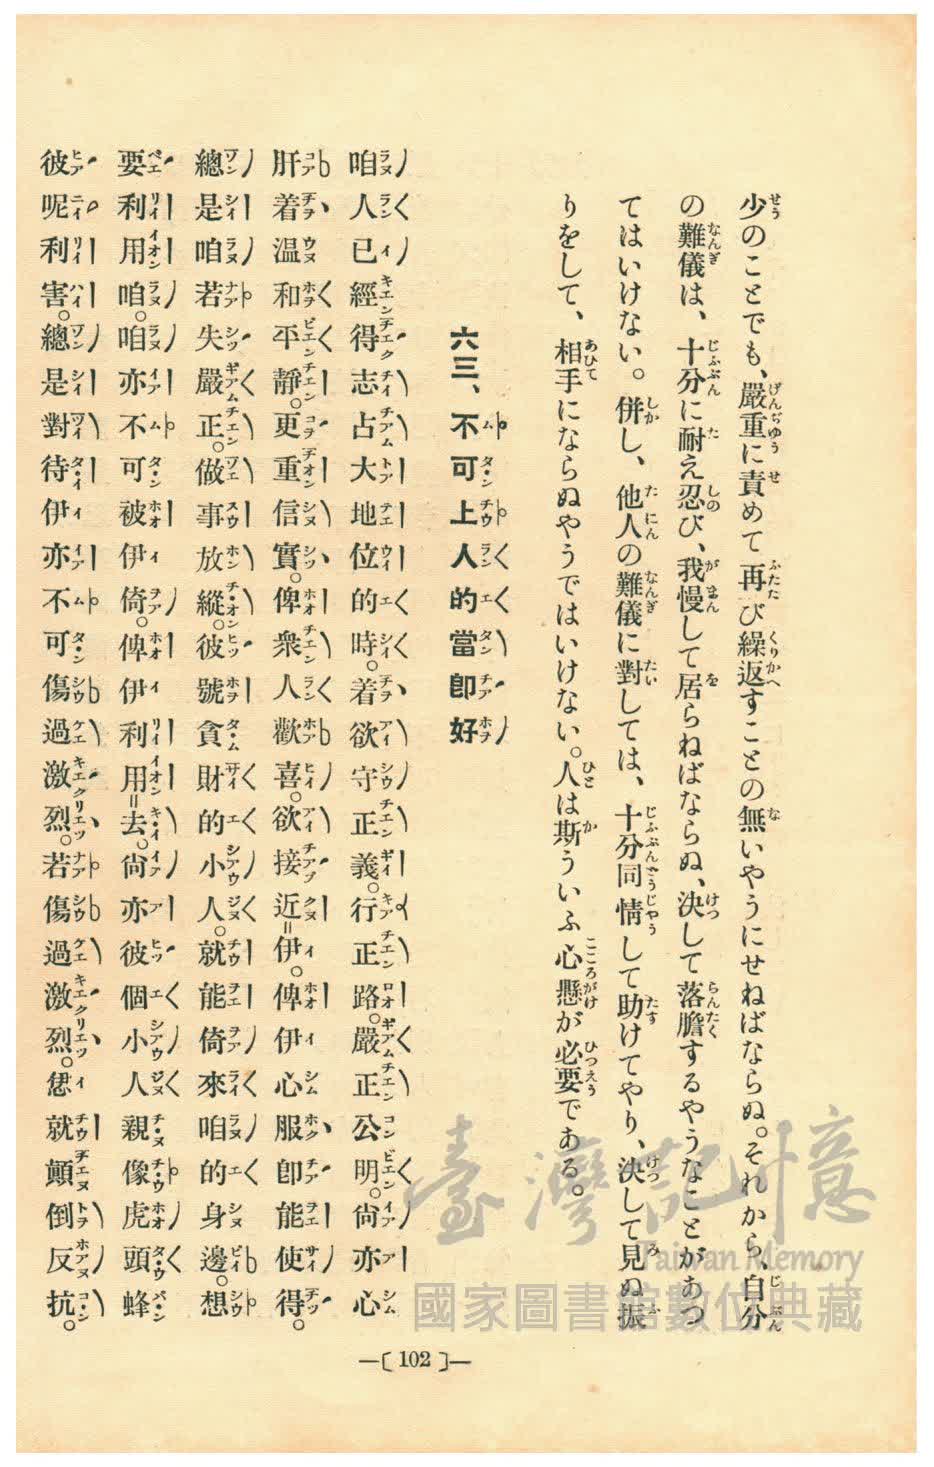 少のことでも、嚴重に責めて再び繰返すことの無いやうにせねばならぬ。それから、自分
の難儀は、十分に耐え忍び、我慢して居らねばならぬ、決して落膽するやうなことがあつ
てはいけない。併し、他人の難儀に對しては、十分同情して助けてやり、決して見ぬ振
りをして、相手にならぬやうではいけない。人は斯ういふ心懸が必要である。
六三、不可上人的當卽好
咱人已經得志占大地位的時。着欲守正義。行正路。嚴正公明。尙亦心
肝着温和平靜。更重信實。俾衆人歡喜。欲接近伊。俾伊心服卽能使得。
總是咱若失嚴正。做事放縱。彼號貪財的小人。就能倚來咱的身邊。想
要利用咱。咱亦不可被伊倚。俾伊利用去。尙亦彼個小人親像虎頭蜂
彼呢利害。總是對待伊亦不可傷過激烈。若傷過激烈。恁就顚倒反抗。
—〔102〕—
臺灣記憶
Taiwan Memory
國家圖書館數位典藏